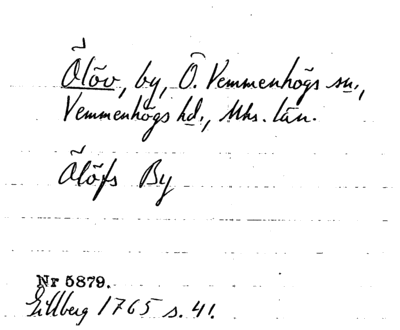 Ölöv, by, Ö. Vemmenhögs sn.,
Vemmenhögs hd., Mhs. län.
Ölöfs By
Nr 5879.
Gillberg 1765 s. 41.